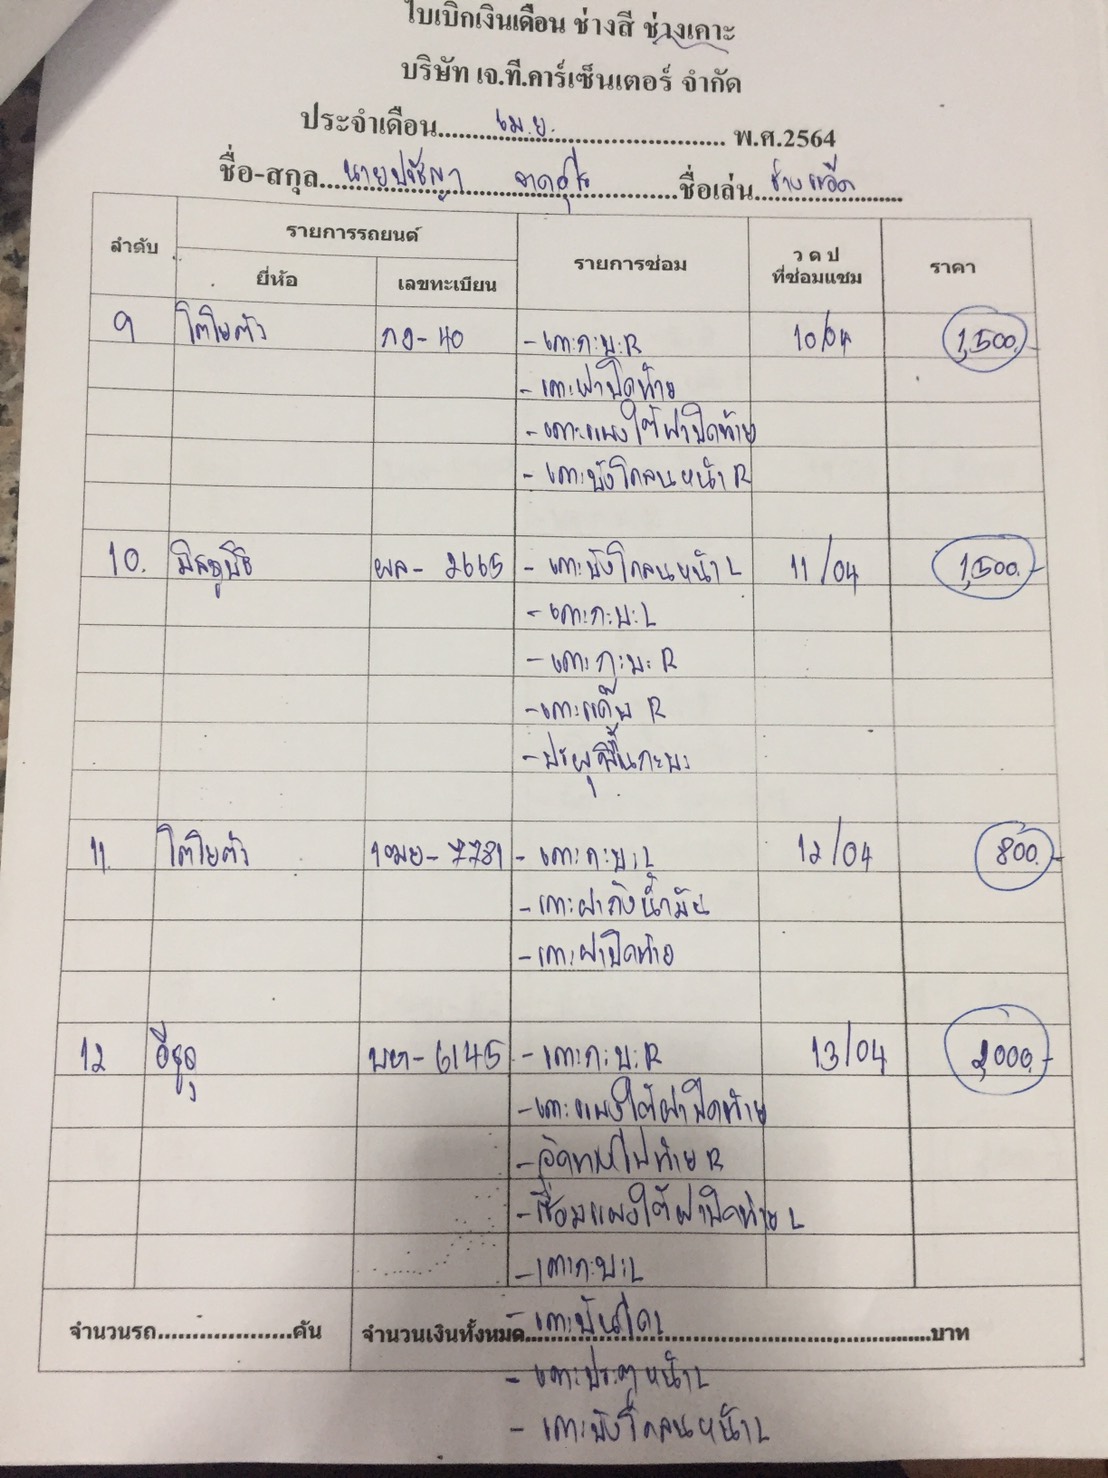 ใบเบิกเงินเดือน ช่างสี ช่างเคาะ
บริษัท เจ.ที.คาร์เซ็นเตอร์ จำกัด
ประจำเดือน เม.ย. พ.ศ.2564
ชื่อ-สกุล นายปรัชญา ชื่อเล่น ช่าง
ลำดับ รายการรถยนต์ รายการซ่อม ว ด ป ที่ซ่อมแซม ราคา
ยี่ห้อ เลขทะเบียน
9 โตโยต้า - 40 - เคาะกะบะ R 10/04 1,500.-
- เคาะฝาปิดท้าย
- เคาะแผงใต้ฝาปิดท้าย
- เคาะบังโคลนหน้า R
10. มิตซูบิชิ ผล - 2665 - เคาะบังโคลนหน้า L 11/04 1,500.-
- เคาะกะบะ L
- เคาะกะบะ R
- เคาะแค๊บ R
- ปะผุพื้นกะบะ
11. โตโยต้า 1ฒย - 7781 - เคาะกะบะ L 12/04 800.-
- เคาะฝาถังน้ำมัน
- เคาะฝาปิดท้าย
12 อีซูซุ บห - 6145 - เคาะกะบะ R 13/04 2,000.-
- เคาะแผงใต้ฝาปิดท้าย
- ไฟท้าย R
- เชื่อมแผงใต้ฝาปิดท้าย L
- เคาะกะบะ L
- เคาะบันได L
จำนวนรถ....................คัน จำนวนเงินทั้งหมด....................บาท
- เคาะประตูหน้า L
- เคาะบังโคลนหน้า L